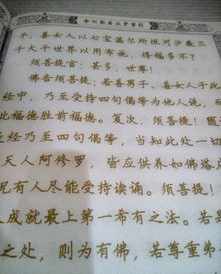 金刚般若波罗蜜经
子、善女人以七宝满尔所恒河沙数三
千大千世界以用布施，得福多不？
须菩提言：甚多，世尊！
佛告须菩提：若善男子、善女人于此
经中，乃至受持四句偈等，为他人说，
此福德胜前福德。复次，须菩提！随
是经乃至四句偈等，当知此处一切
天人阿修罗，皆应供养如佛塔
况有人尽能受持读诵。须菩提！
成就最上第一希有之法。若
之处，则为有佛，若尊重弟